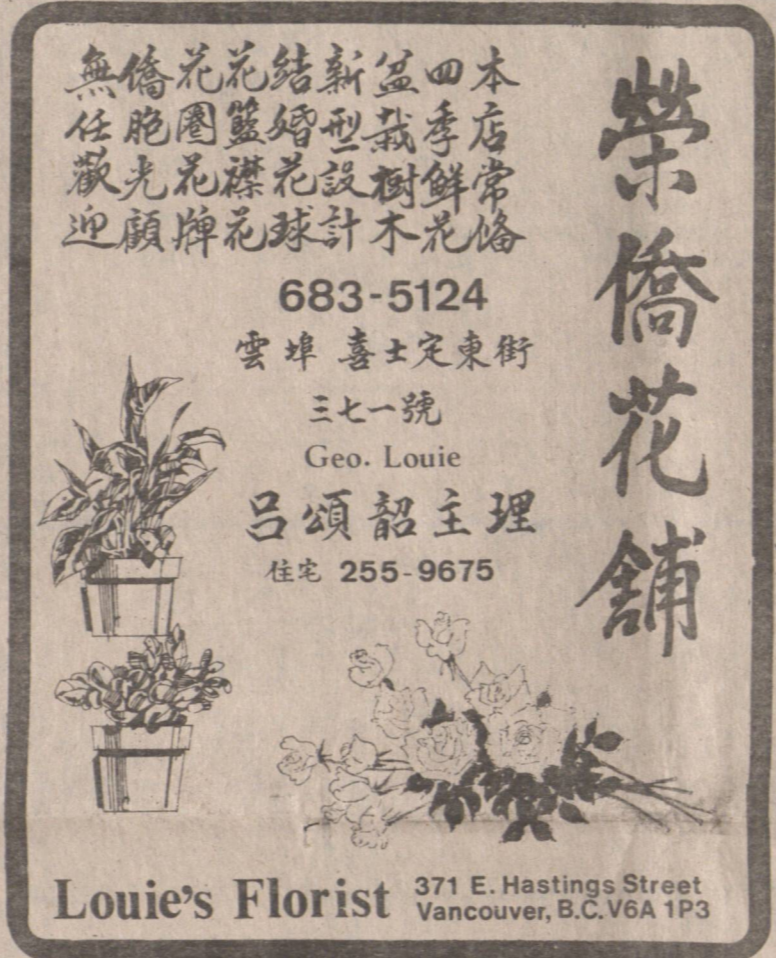 榮僑花舖
本店常備
四季鮮花
盆栽樹木
新型設計
結婚花球
花籃襟花
花圈花牌
僑胞光顧
無任歡迎
683-5124
雲埠 喜士定東街
三七一號
Geo. Louie
呂頌韶主理
住宅 255-9675
Louie's Florist
371 E. Hastings Street
Vancouver, B.C. V6A 1P3